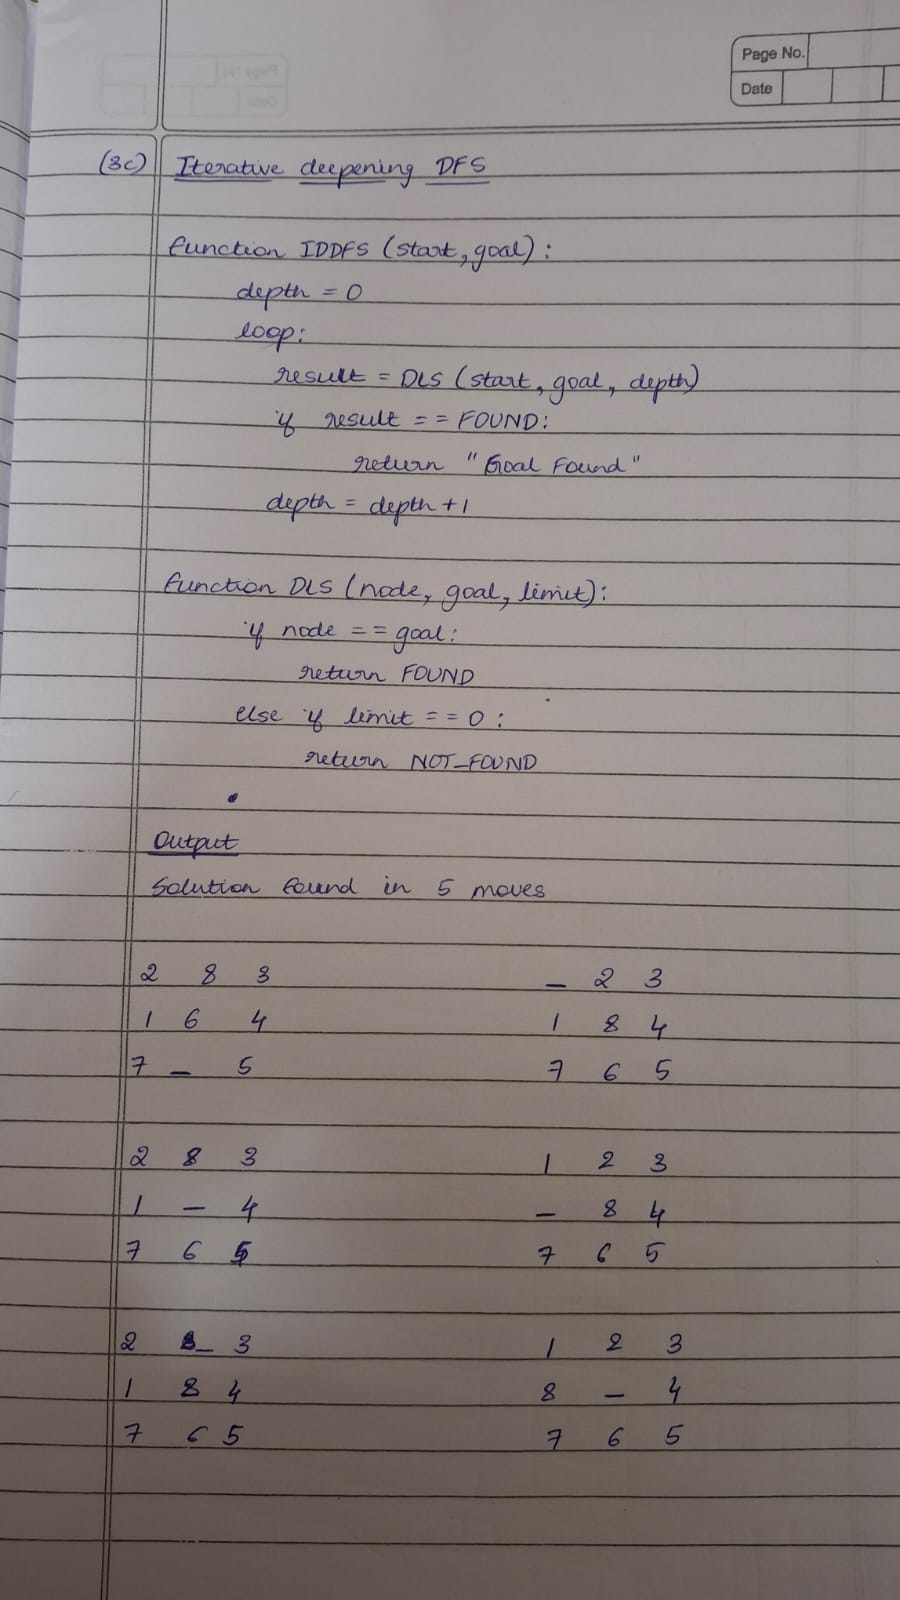 Page No.
Date
(3c) Iterative deepening DFS
function IDDFS (start, goal):
depth = 0
loop:
result = DLS (start, goal, depth)
if result == FOUND:
return "Goal Found"
depth = depth + 1
function DLS (node, goal, limit):
if node == goal:
return FOUND
else if limit == 0:
return NOT_FOUND
Output
Solution found in 5 moves
2 8 3
1 6 4
7 _ 5
2 8 3
1 _ 4
7 6 5
2 _ 3
1 8 4
7 6 5
_ 2 3
1 8 4
7 6 5
1 2 3
_ 8 4
7 6 5
1 2 3
8 _ 4
7 6 5